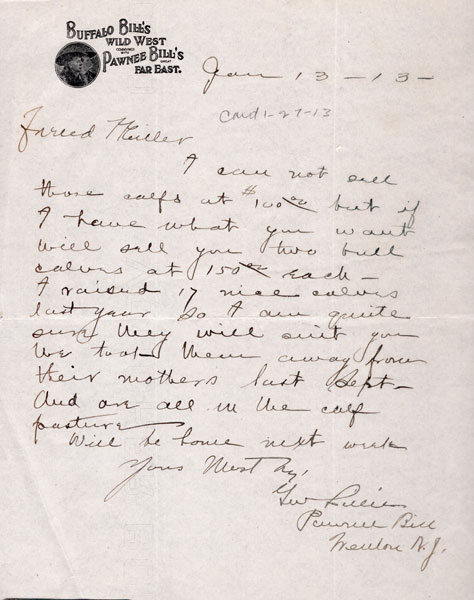 BUFFALO BILL'S
WILD WEST
COMBINED WITH
PAWNEE BILL'S
GREAT
FAR EAST.
Jan 13-13-
Card 1-27-13
Friend Miller
I can not sell
those calfs at $100 00 but if
I have what you want
will sell you two bull
calves at 150 00 each-
I raised 17 nice calves
last year so I am quite
sure they will suit you
We took them away from
their mothers last Sept-
And are all in the calf
pasture
Will be home next week
Yours Most try,
GW Lillie
Pawnee Bill
Trenton N.J.